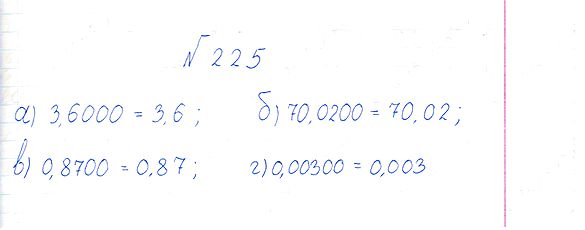 № 225
а) 3,6000 = 3,6 ; б) 70,0200 = 70,02 ;
в) 0,8700 = 0,87 ; г) 0,00300 = 0,003